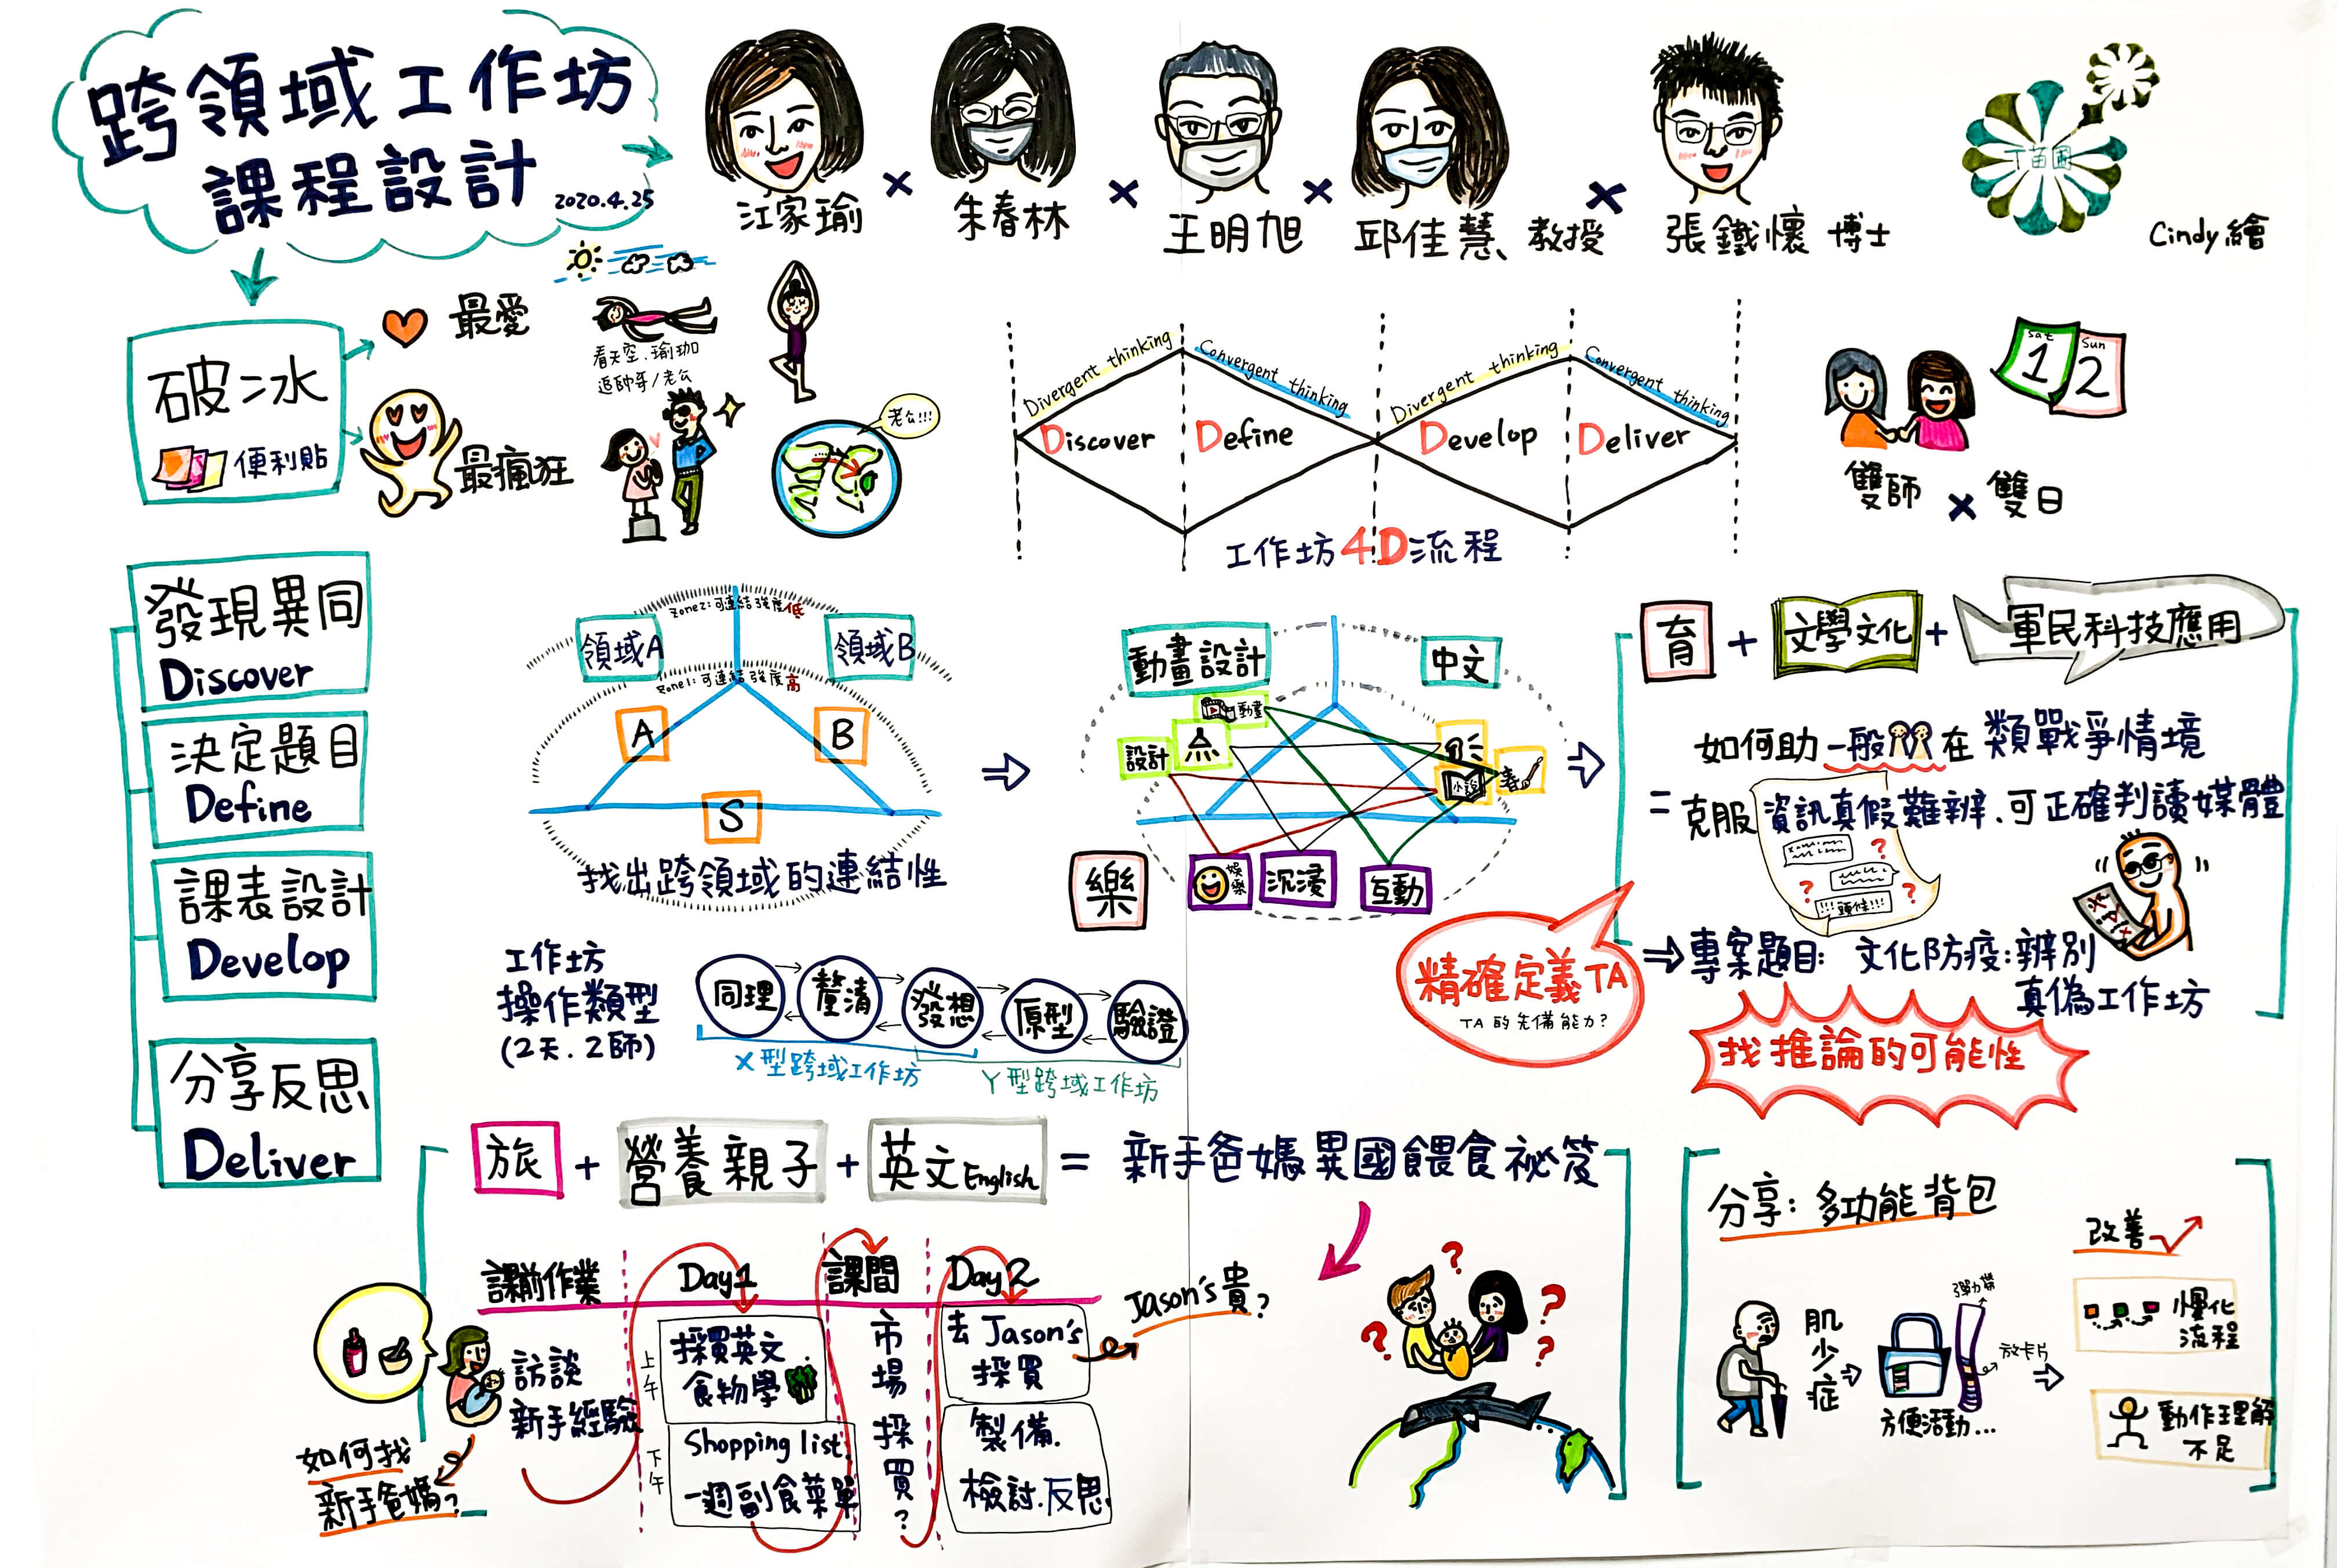 跨領域工作坊
課程設計
2020.4.25
江家瑜
×
朱春林
×
王明旭
×
邱佳慧 教授
×
張鐵懷 博士
丁苗圃
Cindy繪
破冰
便利貼
最愛
最瘋狂
看天空.瑜珈
追帥哥/老公
老公!!!
Divergent thinking
Convergent thinking
Divergent thinking
Convergent thinking
Discover
Define
Develop
Deliver
工作坊4D流程
Sat
1
Sun
2
雙師 × 雙日
發現異同
Discover
決定題目
Define
課表設計
Develop
分享反思
Deliver
zone2:可連結強度低
領域A
領域B
zone1:可連結強度高
A
B
S
找出跨領域的連結性
動畫設計
中文
動畫
設計
小說
樂
娛樂
沉浸
互動
育 + 文學文化 + 軍民科技應用
如何助一般 在類戰爭情境
= 克服資訊真假難辨、可正確判讀媒體
? ? ?
!!!頭條!!!
⇒專案題目: 文化防疫:辨別
真偽工作坊
精確定義TA
TA的先備能力?
找推論的可能性
工作坊
操作類型
(2天.2師)
同理
釐清
發想
原型
驗證
X型跨域工作坊
Y型跨域工作坊
旅 + 營養親子 + 英文English = 新手爸媽異國餵食祕笈
課前作業
Day1
課間
Day2
訪談
新手經驗
如何找
新手爸媽?
上午
採買英文.
食物學
下午
Shopping list.
一週副食菜單
市場採買?
去Jason's
採買
製備.
檢討.反思.
Jason's貴?
? ? ? ?
分享:多功能背包
肌少症
彈力帶
放卡片
方便活動...
改善
優化
流程
動作理解
不足